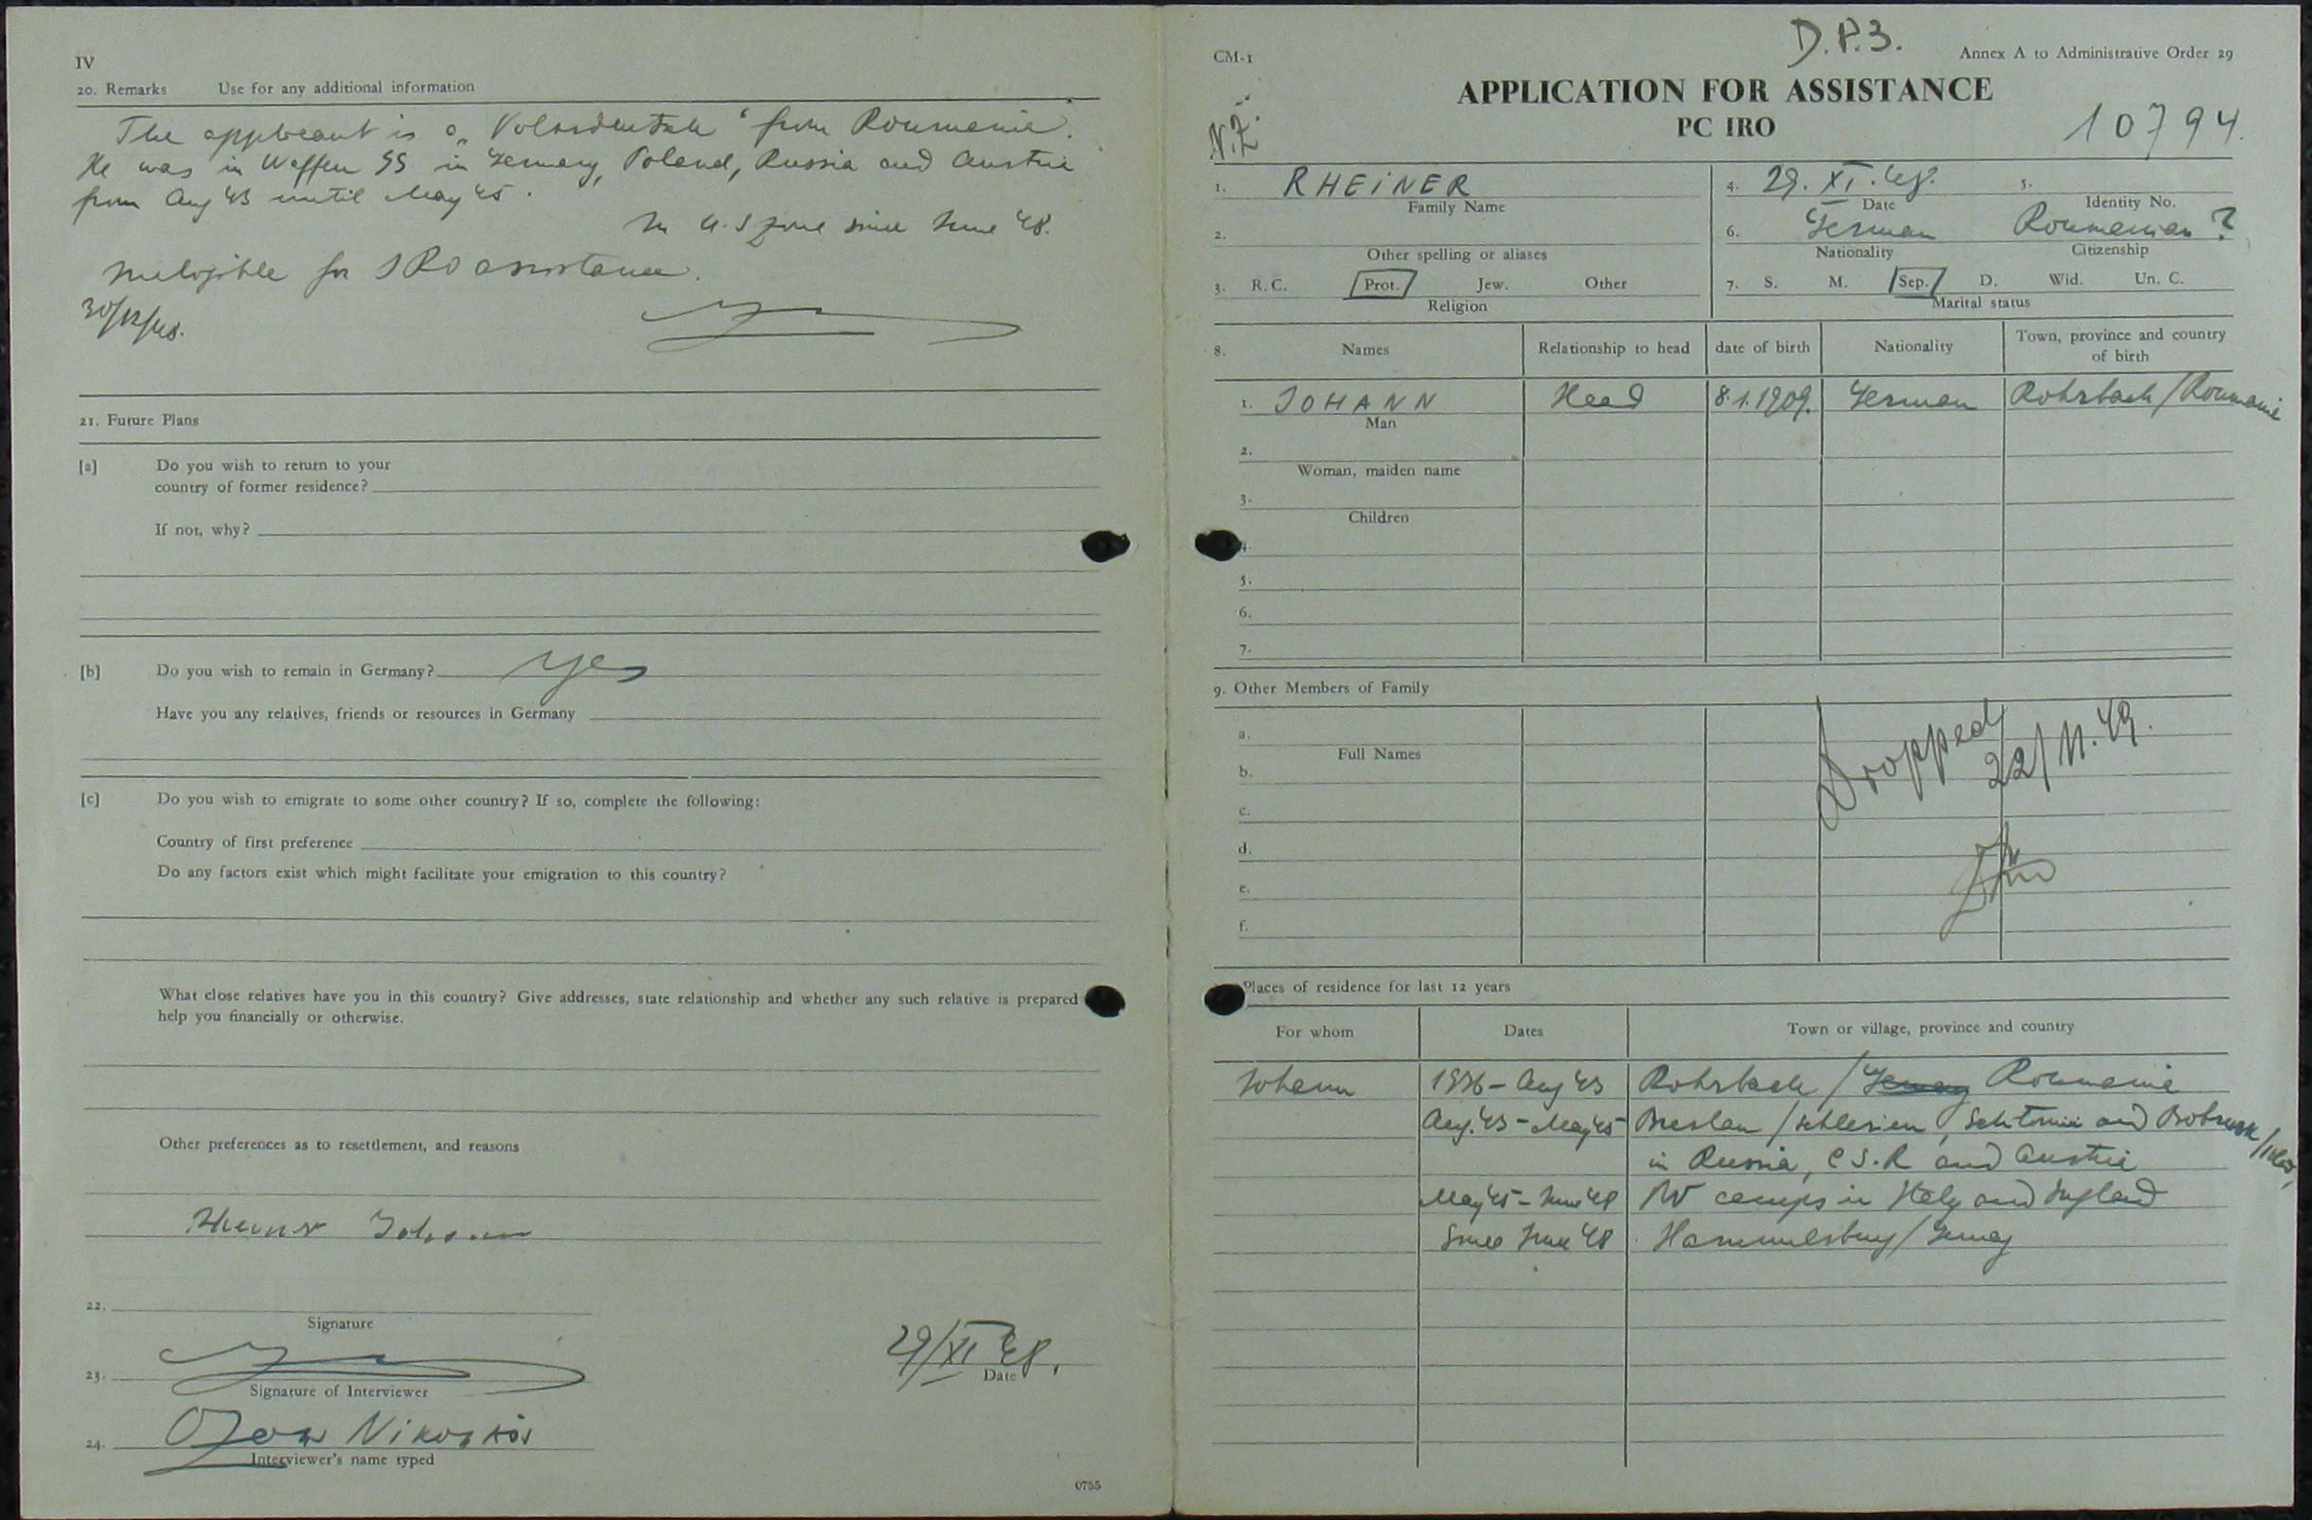 IV
20. Remarks Use for any additional information
The applicant is a „Volksdeutsche“ from Roumenie.
He was in Waffen SS in Germany, Poland, Russia and Austria
from Aug 43 until May 45.
In U.S zone since June 48.
Ineligible for IRO assistance.
30/12/48.
21. Future Plans
[a] Do you wish to return to your
country of former residence?
If not, why?
[b] Do you wish to remain in Germany? Yes
Have you any relatives, friends or resources in Germany
[c] Do you wish to emigrate to some other country? If so, complete the following:
Country of first preference
Do any factors exist which might facilitate your emigration to this country?
What close relatives have you in this country? Give addresses, state relationship and whether any such relative is prepared
help you financially or otherwise.
Other preferences as to resettlement, and reasons
Johann
22.
Signature
29/XI 48.
23.
Signature of Interviewer
Date
24.
Interviewer's name typed
0755
CM-1
D.P.3.
Annex A to Administrative Order 29
APPLICATION FOR ASSISTANCE
PC IRO
N.Z.
10794.
1. RHEINER
Family Name
4. 29. XI. 48.
Date
5.
Identity No.
2.
Other spelling or aliases
6. German Roumanian ?
Nationality Citizenship
3. R.C. Prot. Jew. Other
Religion
7. S. M. Sep. D. Wid. Un. C.
Marital status
8. Names Relationship to head date of birth Nationality Town, province and country
of birth
1. JOHANN Head 8.1.1909. German Rohrbach/Roumanie
Man
2.
Woman, maiden name
3.
Children
4.
5.
6.
7.
9. Other Members of Family
a.
Full Names
b.
c.
d.
e.
f.
Dropped
22/11.49.
Places of residence for last 12 years
For whom Dates Town or village, province and country
Johann 1936 - Aug 43 Rohrbach / Germany Roumanie
Aug. 43 - May 45 Breslau / Schlesien, and Bobrusk
in Russia, C S.R and Austria
May 45 - June 48 PW camps in Italy and England
Since June 48 Hammelburg / Germany